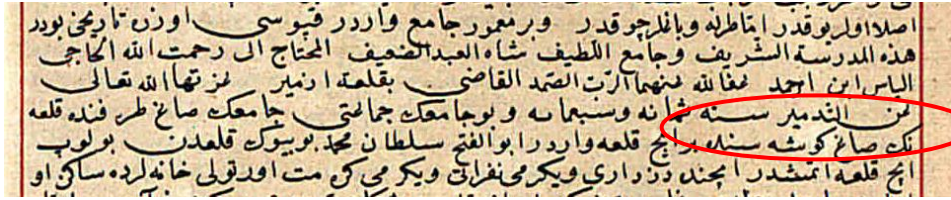 اصلا اولر يوقدر اما طرله وباغلر چوقدر وبر معمور جامع واردر قپوسی اوزره تاريخی بودر
هذه المدرسة الشريف وجامع اللطيف شاه العبد الضعيف المحتاج الى رحمت الله الحاجی
الياس ابن احمد عفا الله عنهما الرت الصمد القاضی بقلعة ازنمير عزتها الله تعالی
لمن التدمير سنه ثمانه وسبعمايه وبو جامعك جماعتی جامعك صاغ طرفنده قلعه
نك صاغ كوشه سنده بر ايچ قلعه واردر ابو الفتح سلطان محمد بو بيوك قلعه‌دن بولوب
ايچ قلعه ايتمشدر ايچنده دزداری ويكرمی نفراتی ويكرمی